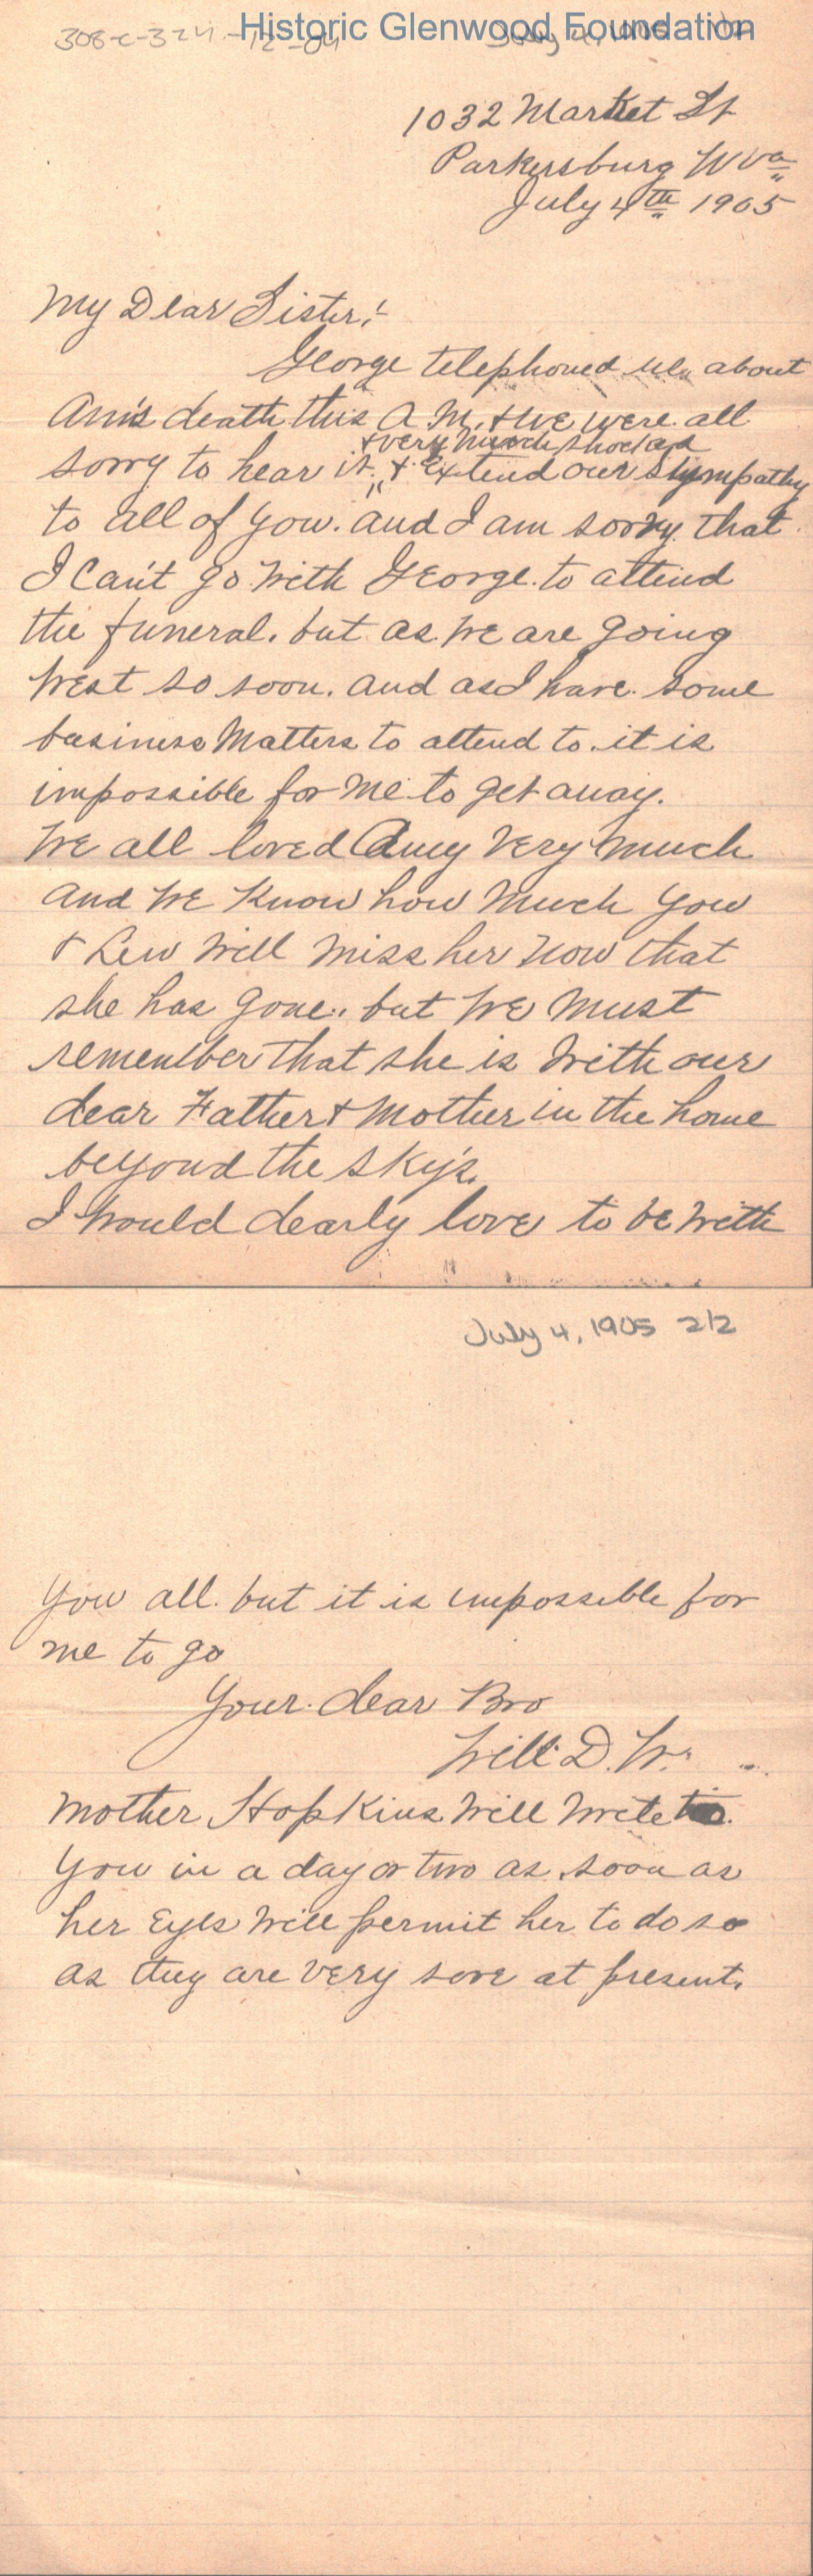 Historic Glenwood Foundation
308-C-324-12-04
1032 Market St
Parkersburg W Va
July 4th 1905
My Dear Sister:-
George telephoned us about
Am's death this A.M. & we were all
& very much shocked
sorry to hear it. & Extend our sympathy
to all of you. and I am sorry that
I can't go with George to attend
the funeral. but as we are going
West so soon. and as I have some
business Matters to attend to. it is
impossible for me to get away.
We all loved Amy very much
and we know how much you
& Lew will miss her now that
she has gone. but we must
remember that she is with our
dear Father & Mother in the home
beyond the sky's.
I would dearly love to be with
July 4, 1905 2/2
You all. but it is impossible for
me to go
Your dear Bro
Will D. W.
Mother Hopkins will write to
you in a day or two as soon as
her Eyes will permit her to do so
as they are very sore at present.